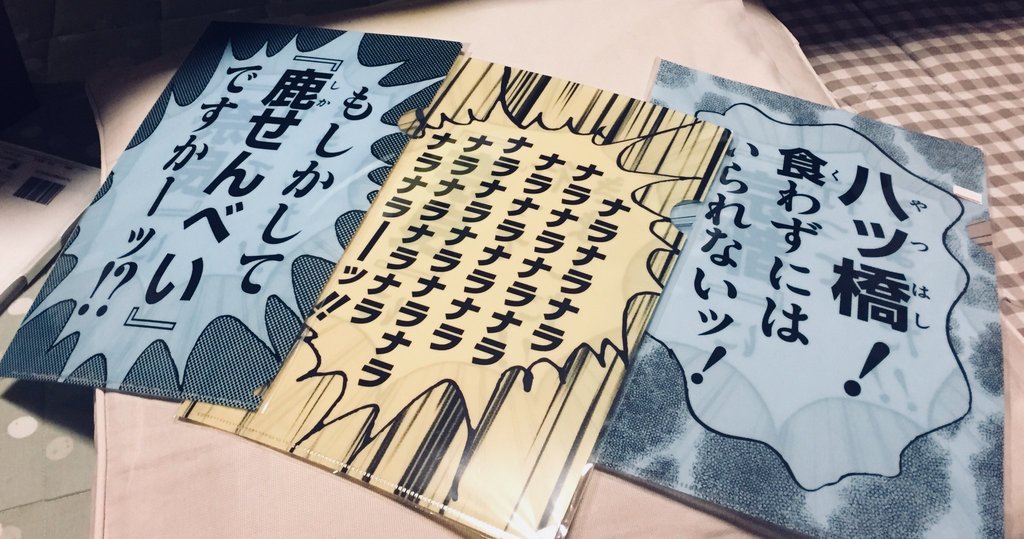 もしかして
『鹿せんべい』
しか
ですかーッ!?
ナラナラナラナラ
ナラナラナラナラナラ
ナラナラナラナラナラ
ナラナラナラナラナラ
ナラナラナラーーッ!!
ハッ橋!
やつはし
食わずには
く
いられないッ!